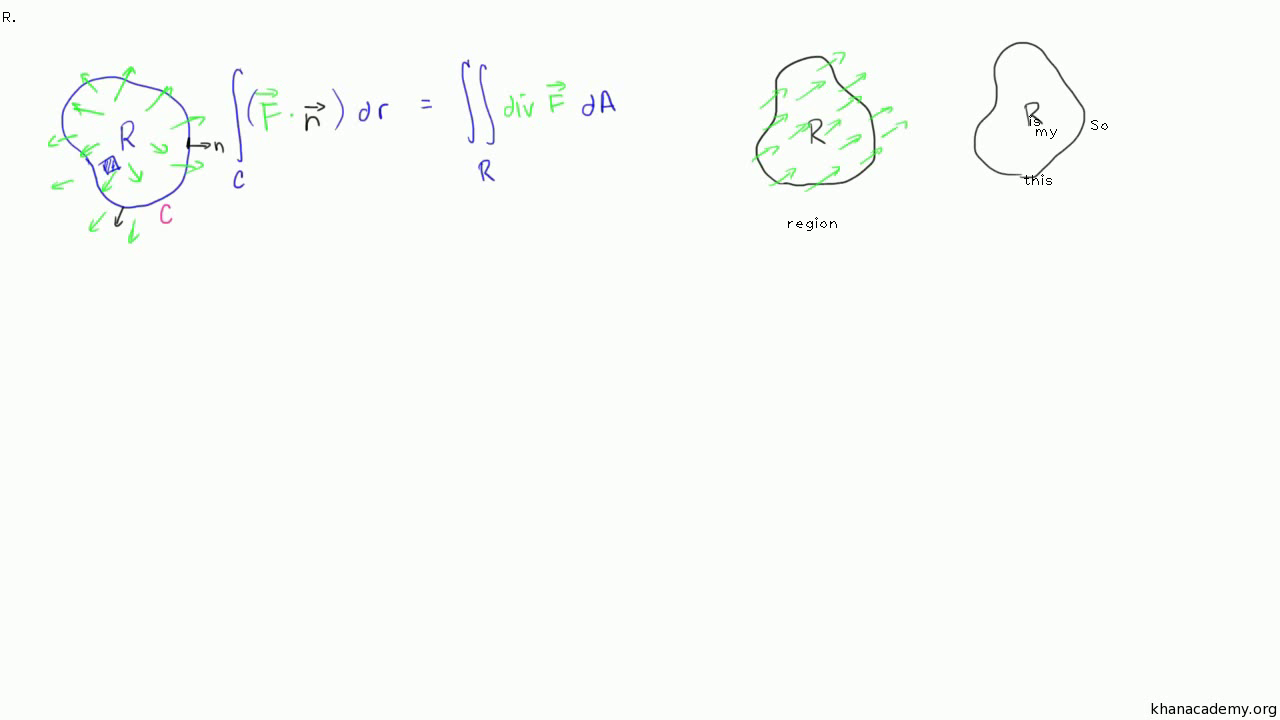 R.
R
n
C
∫ (F⃗ · n⃗) dr = ∬ div F⃗ dA
C
R
R
region
R
is
my
So
this
khanacademy.org